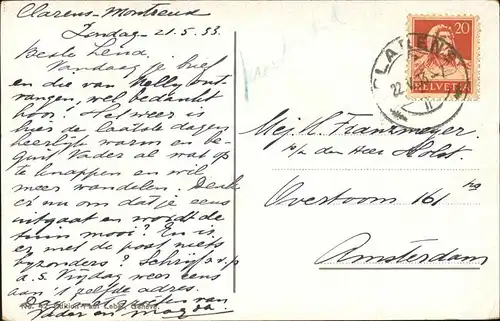 Clarens-Montreux
Zondag - 21.5.33.
Beste Lena.
Vandaag je brief
en die van Nelly ont-
vangen, wel bedankt
hoor! Het weer is
hier de laatste dagen
heerlijk warm en be-
gint Vader al wat op
te knappen en wil
meer wandelen. Denk
er nu om dat je eens
uitgaat en wordt de
tuin mooi? En is
er met de post niets
byzonders? Schrijf s.v.p.
a.s. Vrydag weer eens
aan 't zelfde adres.
Dag met groeten van
Vader en
Edition Paul Genève.
20
HELVETIA
CLARENS
22.V.33.-7
II
Mej. H. Franzmeyer.
p/a den Heer Holst
Overtoom 161 hs
Amsterdam